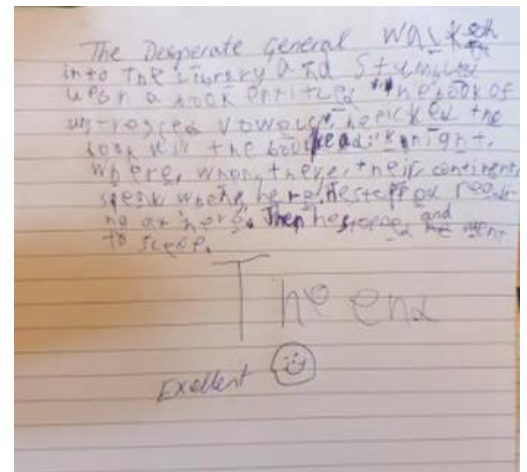 The Desperate General walk
into The Library and Stumbled
upon a book entitled "The book of
un-rossed vowels", he picked the
book the book read: "Knight,
where, when, there, their, continent,
speak whene, here. He stopped read-
ng at 'here'. Then he stopped and went
to sleep.
The end
Exellent